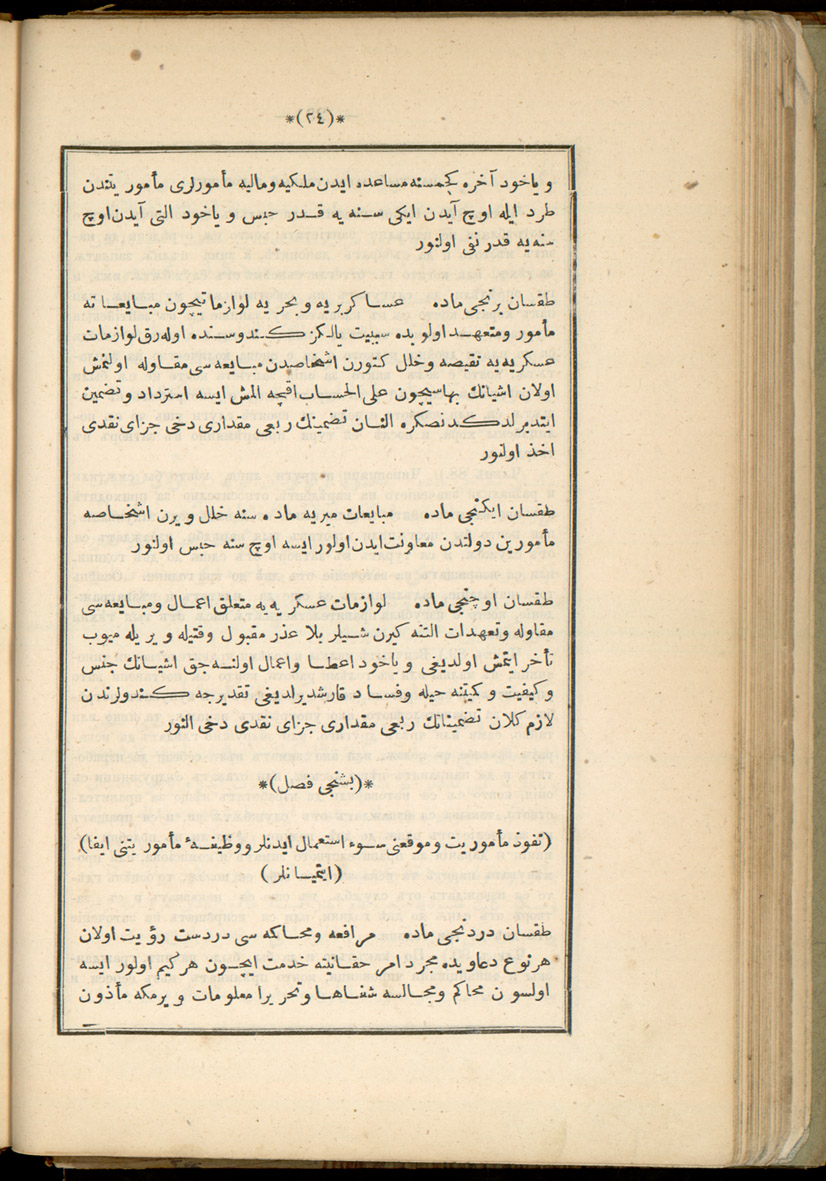 *(٢٤)*
و ياخود آخره كچمسنه مساعده ايدن ملكيه و ماليه مأمورلرى مأموريتندن
طرد ايله اوچ آيدن ايكى سنه يه قدر حبس و ياخود التى آيدن اوچ
سنه يه قدر نفى اولنور
طقسان برنجى ماده عساكر بريه و بحريه لوازماتيچون مبايعاته
مأمور ومتعهد اولوبده سببيت يالكز كندوسنده اوله رق لوازمات
عسكريه يه نقيصه وخلل كتورن اشخاصدن مبايعه سى مقاوله اولنمش
اولان اشيانك بهاسيچون على الحساب اقچه المش ايسه استرداد و تضمين
ايتديرلدكدنصكره النان تضمينك ربعى مقدارى دخى جزاى نقدى
اخذ اولنور
طقسان ايكنجى ماده مبايعات ميريه ماده سنه خلل ويرن اشخاصه
مأمورين دولتدن معاونت ايدن اولور ايسه اوچ سنه حبس اولنور
طقسان اوچنجى ماده لوازمات عسكريه يه متعلق اعمال ومبايعه سى
مقاوله وتعهدات التنه كيرن شيلر بلا عذر مقبول وقتيله ويريله ميوب
تأخر ايتمش اولديغى و ياخود اعطا واعمال اولنه جق اشيانك جنس
وكيفيت و كميتنه حيله وفساد قارشديرلديغى تقديرجه كندولرندن
لازم كلان تضميناتك ربعى مقدارى جزاى نقدى دخى النور
*(بشنجى فصل)*
(نفوذ مأموريت وموقعنى سوء استعمال ايدنلر ووظيفهٔ مأموريتنى ايفا)
(ايتميانلر)
طقسان دردنجى ماده مرافعه ومحاكمه سى دردست رؤيت اولان
هر نوع دعاويده مجرد امر حقانيته خدمت ايچون هركيم اولور ايسه
اولسون محاكم ومجالسه شفاها وتحريرا معلومات ويرمكه مأذون